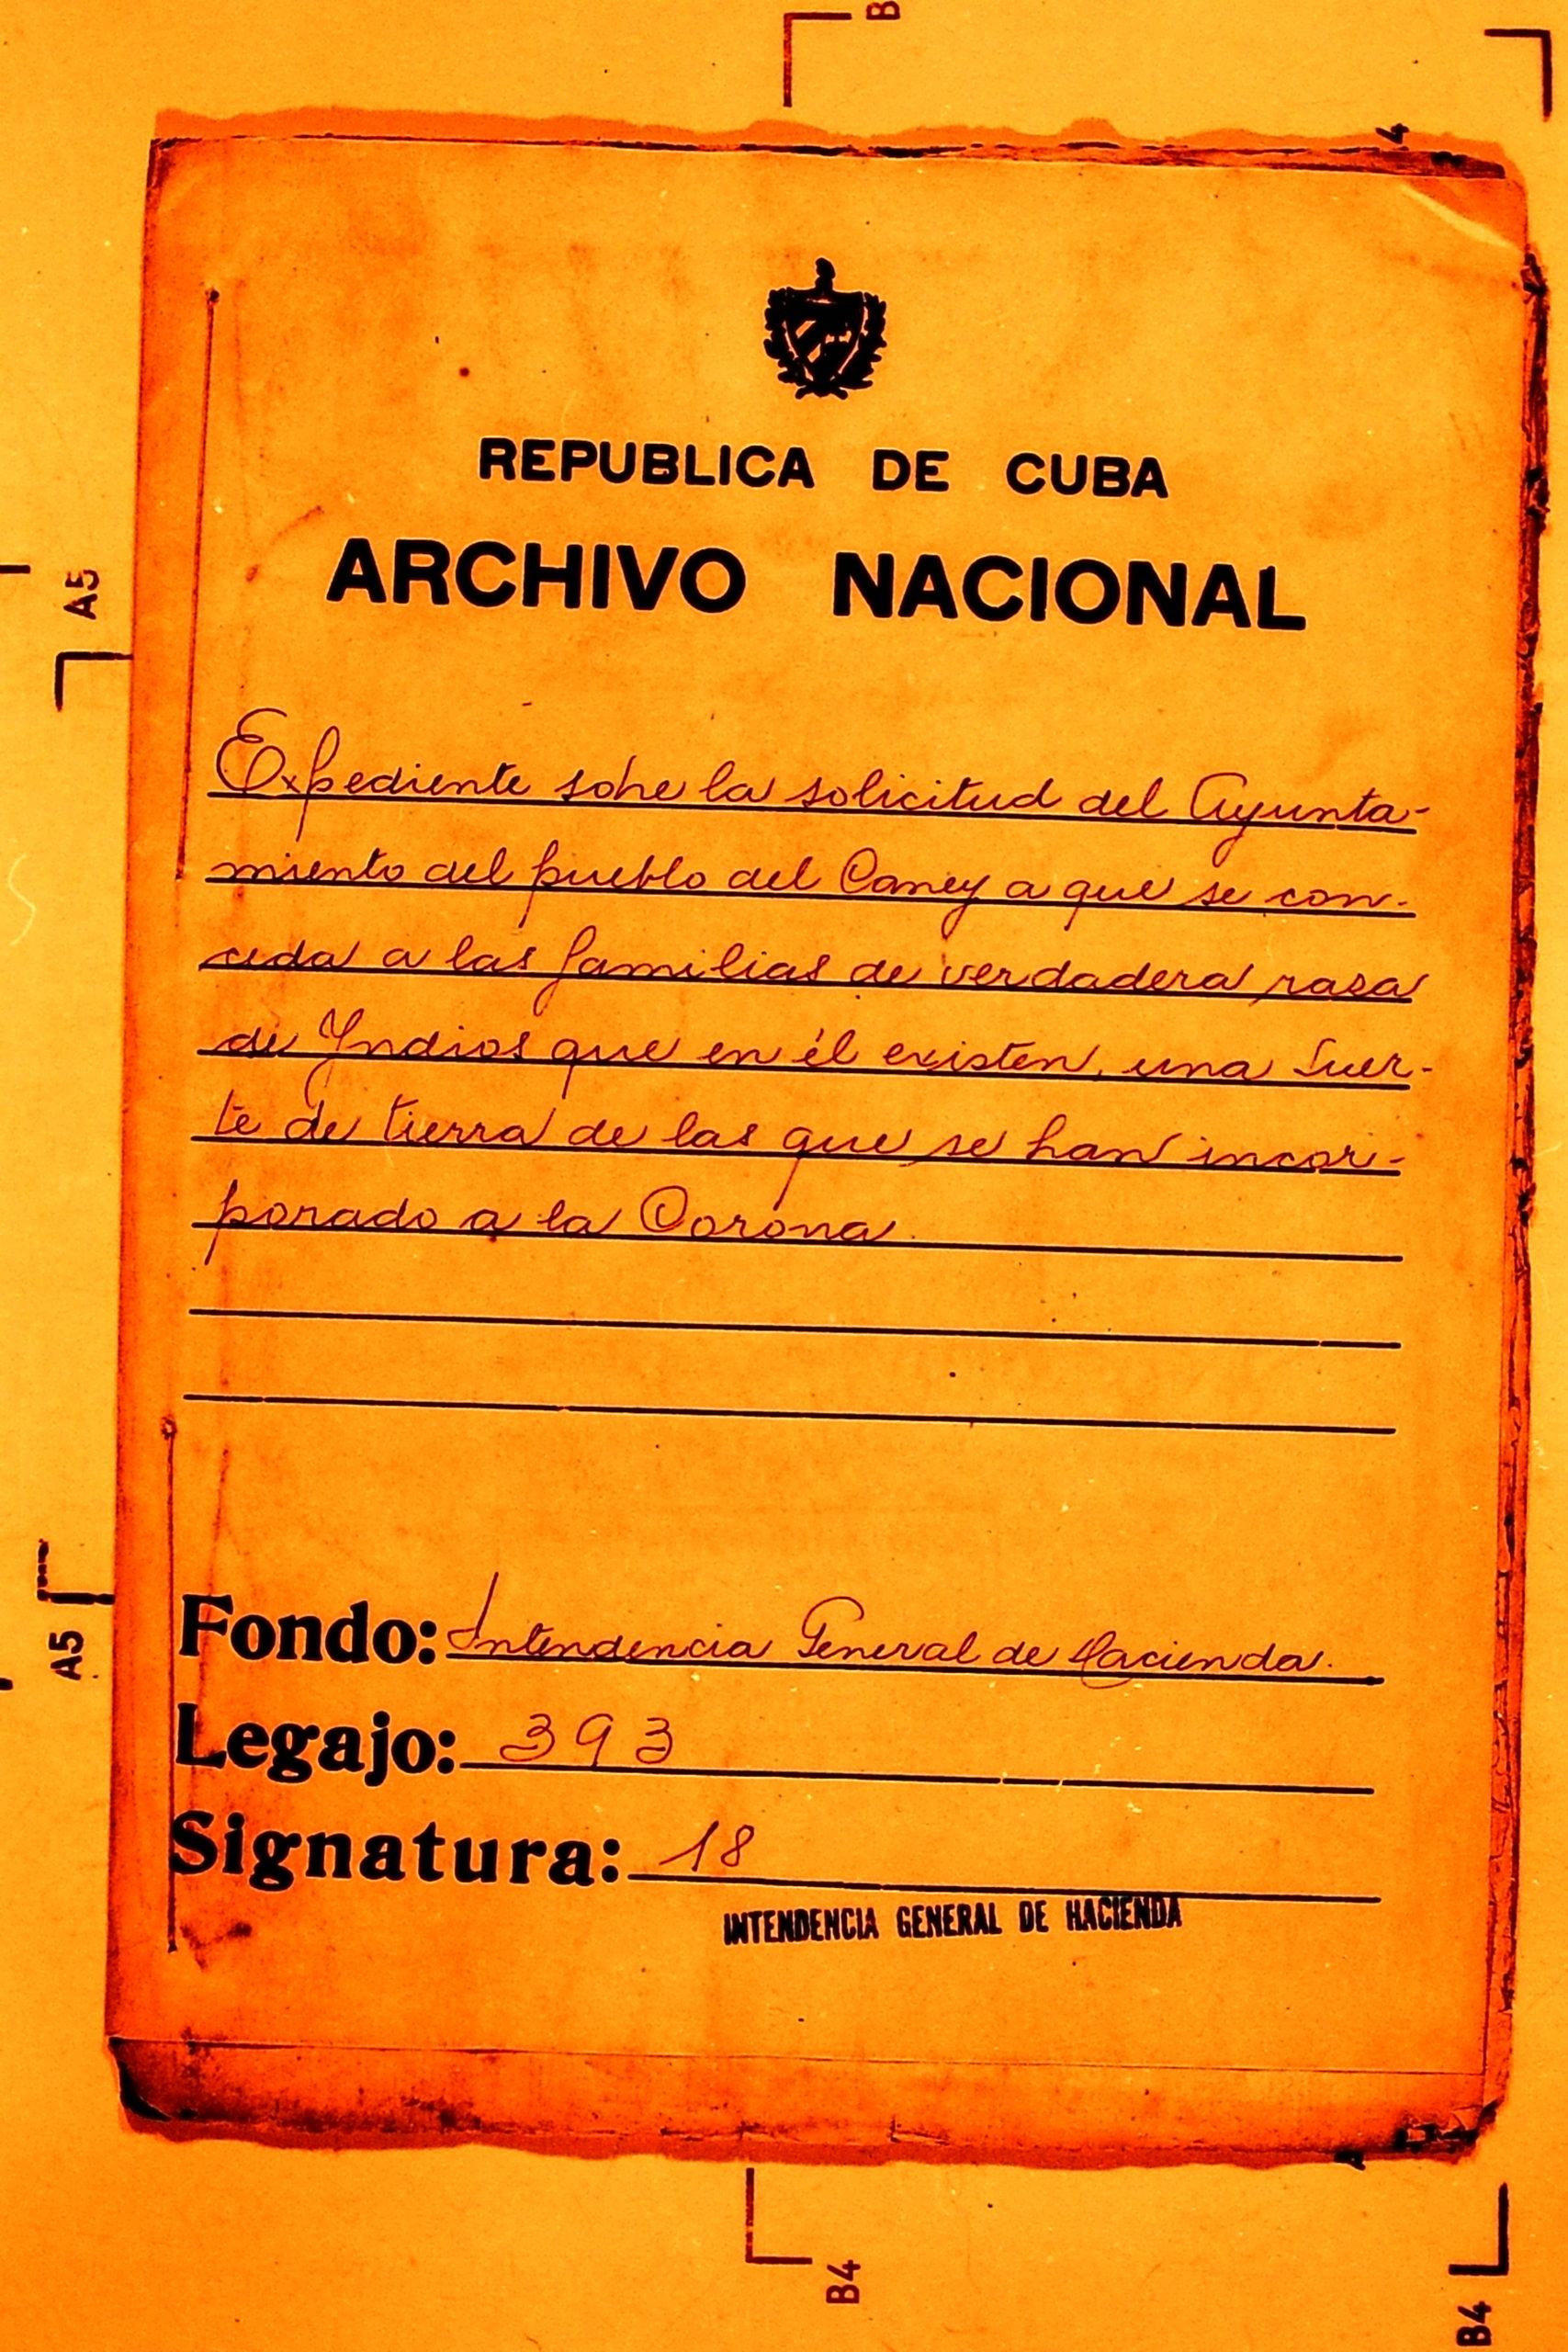 B
4
REPUBLICA DE CUBA
ARCHIVO NACIONAL
A5
Expediente sobre la solicitud del Ayunta-
miento del pueblo del Caney a que se con-
ceda a las familias de verdadera raza
de Yndios que en él existen, una suer-
te de tierra de las que se han incor-
porado a la Corona
Fondo: Intendencia General de Hacienda.
A5
Legajo: 393
Signatura: 18
INTENDENCIA GENERAL DE HACIENDA
B4
B4